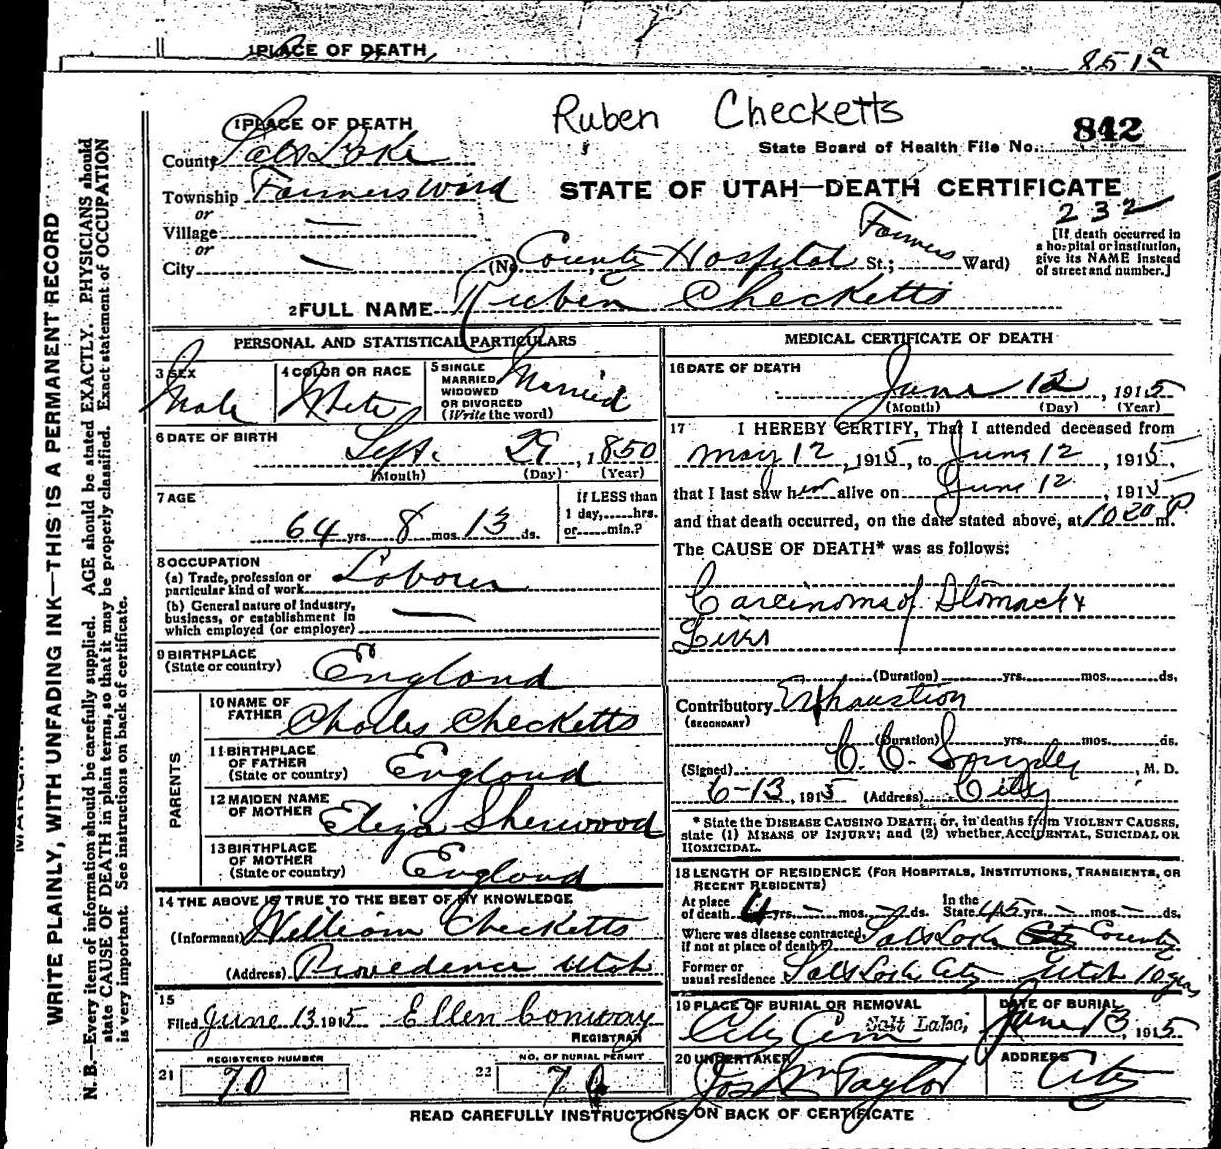 1 PLACE OF DEATH
851a
Ruben Checketts
1 PLACE OF DEATH
County Salt Lake
842
State Board of Health File No.
Township Farmers Ward
STATE OF UTAH—DEATH CERTIFICATE
232
or
Village —
or
City —
(No. County Hospital St.; Farmers Ward)
[If death occurred in
a hospital or institution,
give its NAME instead
of street and number.]
2 FULL NAME Ruben Checketts
PERSONAL AND STATISTICAL PARTICULARS
3 SEX
Male
4 COLOR OR RACE
White
5 SINGLE
MARRIED
WIDOWED
OR DIVORCED
(Write the word)
Married
6 DATE OF BIRTH
Sept. 29, 1850
(Month) (Day) (Year)
7 AGE
64 yrs. 8 mos. 13 ds.
if LESS than
1 day,......hrs.
or......min.?
8 OCCUPATION
(a) Trade, profession or
particular kind of work Laborer
(b) General nature of Industry,
business, or establishment in
which employed (or employer) —
9 BIRTHPLACE
(State or country) England
PARENTS
10 NAME OF
FATHER Charles Checketts
11 BIRTHPLACE
OF FATHER
(State or country) England
12 MAIDEN NAME
OF MOTHER Eliza Sherwood
13 BIRTHPLACE
OF MOTHER
(State or country) England
14 THE ABOVE IS TRUE TO THE BEST OF MY KNOWLEDGE
(Informant) William Checketts
(Address) Providence Utah
15
Filed June 13 1915 Ellen Conway
REGISTRAR
REGISTERED NUMBER
21 70
NO. OF BURIAL PERMIT
22 70
MEDICAL CERTIFICATE OF DEATH
16 DATE OF DEATH
June 12, 1915
(Month) (Day) (Year)
17 I HEREBY CERTIFY, That I attended deceased from
May 12, 1915, to June 12, 1915,
that I last saw him alive on June 12, 1915
and that death occurred, on the date stated above, at 10 20 P m.
The CAUSE OF DEATH* was as follows:
Carcinoma of Stomach &
Liver
(Duration) yrs. mos. ds.
Contributory Exhaustion
(SECONDARY)
(Duration) yrs. mos. ds.
(Signed) C. C. Snyder, M. D.
6-13, 1915 (Address) City
* State the DISEASE CAUSING DEATH, or, in deaths from VIOLENT CAUSES,
state (1) MEANS OF INJURY; and (2) whether, ACCIDENTAL, SUICIDAL OR
HOMICIDAL.
18 LENGTH OF RESIDENCE (FOR HOSPITALS, INSTITUTIONS, TRANSIENTS, OR
RECENT RESIDENTS)
At place
of death 4 yrs. — mos. — ds.
In the
State 45 yrs. — mos. — ds.
Where was disease contracted,
if not at place of death? Salt Lake County
Former or
usual residence Salt Lake City Utah 10 yrs
19 PLACE OF BURIAL OR REMOVAL
City Cem Salt Lake,
DATE OF BURIAL
June 13, 1915
20 UNDERTAKER
Jos Wm Taylor
ADDRESS
City
READ CAREFULLY INSTRUCTIONS ON BACK OF CERTIFICATE
WRITE PLAINLY, WITH UNFADING INK—THIS IS A PERMANENT RECORD
N. B.—Every item of information should be carefully supplied. AGE should be stated EXACTLY. PHYSICIANS should
state CAUSE OF DEATH in plain terms, so that it may be properly classified. Exact statement of OCCUPATION
is very important. See instructions on back of certificate.